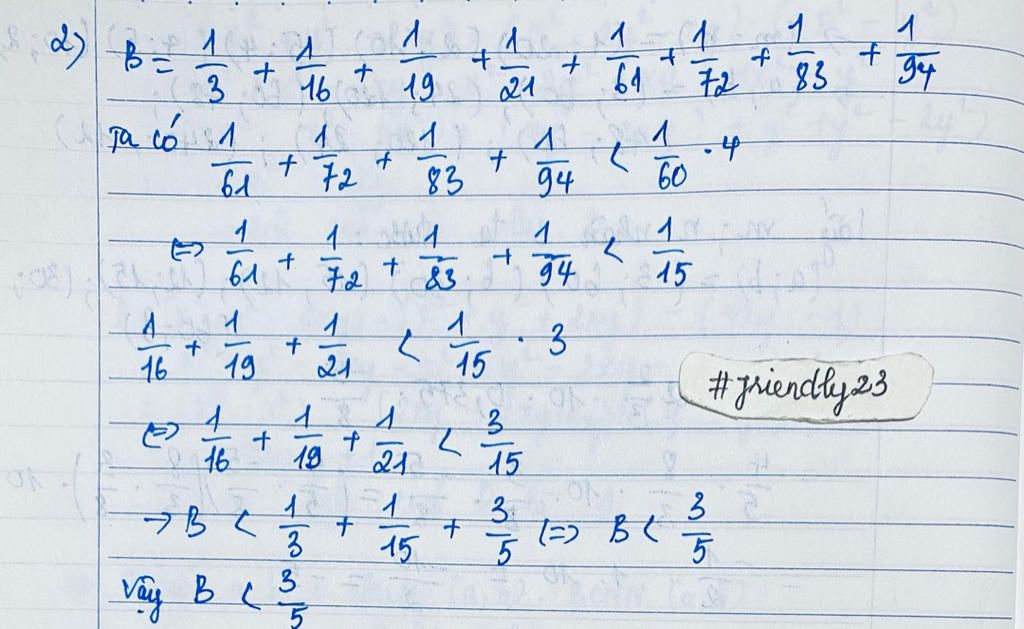 2) B = 1/3 + 1/16 + 1/19 + 1/21 + 1/61 + 1/72 + 1/83 + 1/94
Ta có 1/61 + 1/72 + 1/83 + 1/94 < 1/60 · 4
<=> 1/61 + 1/72 + 1/83 + 1/94 < 1/15
1/16 + 1/19 + 1/21 < 1/15 · 3
<=> 1/16 + 1/19 + 1/21 < 3/15
#friendly23
→ B < 1/3 + 1/15 + 3/5 <=> B < 3/5
Vậy B < 3/5